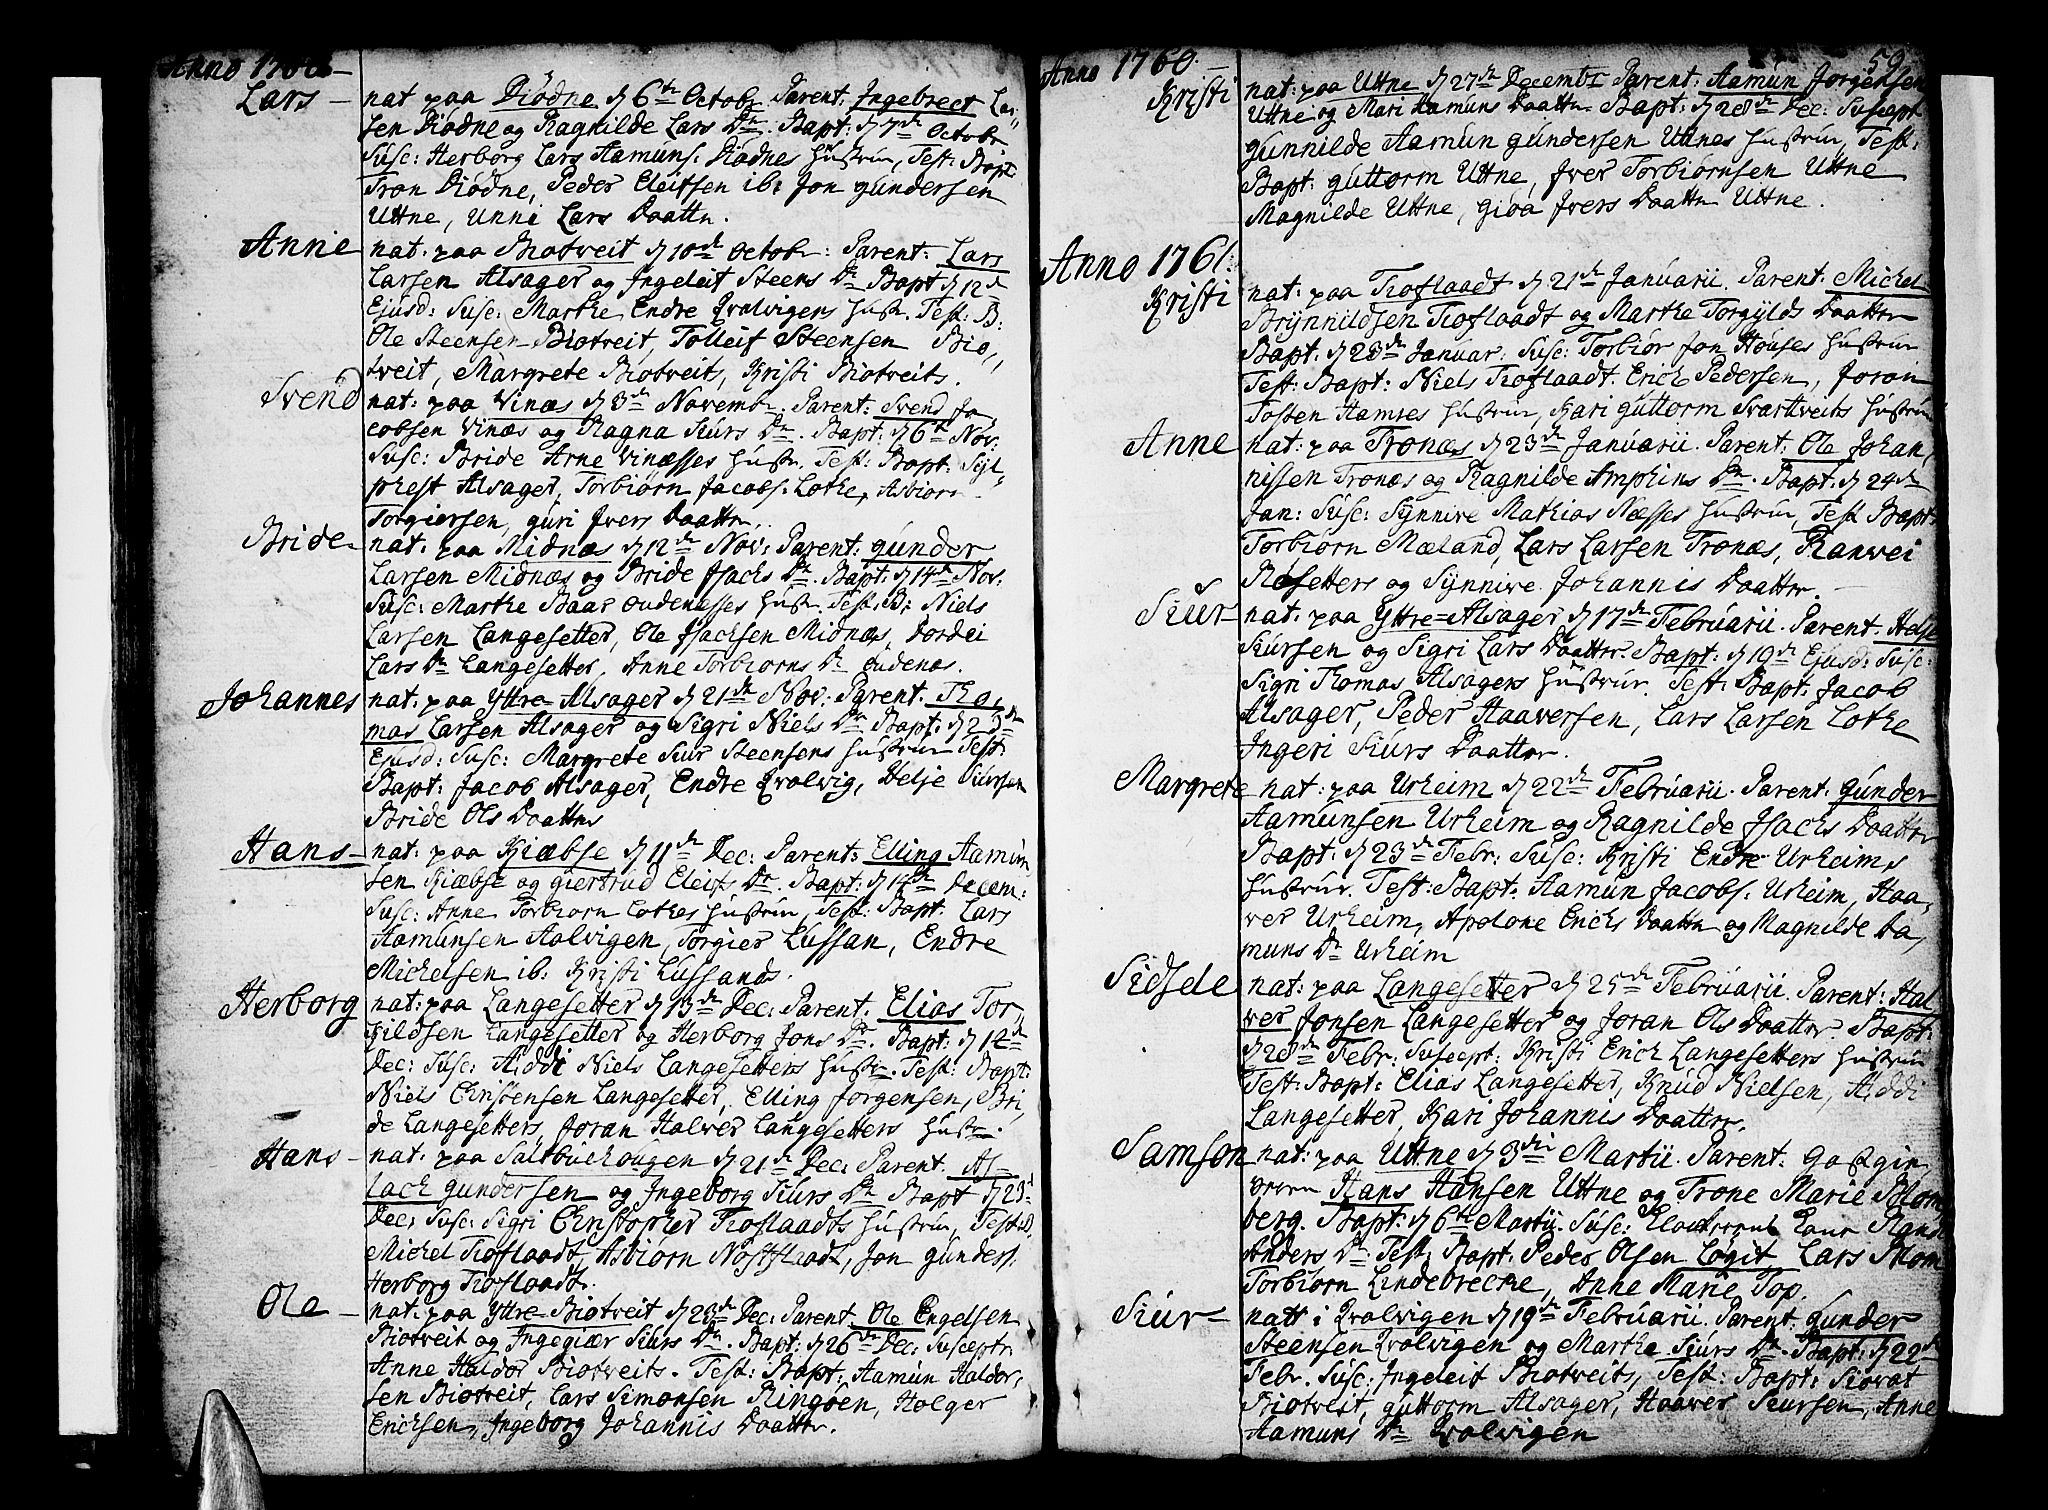 Anno 1760
Lars – nat paa Diödne d 6te Octobr Parent: Ingebrect Lar-
sen Diödne og Ragnilde Lars Dr: Bapt: d 7de Octobr
Susc: Herborg Lars Aamuns: Diödnes Hustru, Test: Bapt:
Tron Diödne, Peder Eleifsen ib: Jon gundersen
Uttne, Unni Lars Daattr.
Anne nat: paa Biotveit d 10de Octobr: Parent: Lars
Larsen Alsager og Ingeleit Steens Dr Bapt d 12te
Ejusd: Susc: Marthe Endre Qvalvigens Hustr. Test: B:
Ole Steensen Biotveit, Tolleif Steensen Bio,,
tveit, Margrete Biotveits, Kristi Biotveits.
Svend nat: paa Vinæs d 3de Novembr: Parent: Svend Ja,
cobsen Vinæs og Ragna Siurs Dr. Bapt: d 6te Nov.
Susc: Bride Arne Vinæsses Hustr. Test: Bapt: Syl,,
phest Alsager, Torbiørn Jacobs: Lothe, Asbiørn
Torgiersen, guri Ivers Daattr.
Bride nat: paa Midnæs d 12te Nov: Parent: gunder
Larsen Midnæs og Bride Isachs Dr. Bapt: d 14de Nov.
Susc: Marthe Baar oudenæsses Hustr. Test: B: Niels
Larsen Langesetter, Ole Isachsen Midnæs, Dordei
Lars Dr Langesetter, Anne Torbiorns Dr oudenæs.
Johannes nat: paa Yttre Alsager d 21de Nov: Parent: Tho,
mas Larsen Alsager og Sigri Niels Dr Bapt: d 23de
Ejusd: Susc: Margrete Siur Steensens Hustrue Test:
Bapt: Jacob Alsager, Endre Qvalvig, Helje Siursen
Bride Ols Daatter
Hans – nat: paa Kiæbse d 11de Dec: Parent: Elling Aamun
sen Kiæbse og giertrud Eleifs Dr. Bapt: d 14de Decem:
Susc: Anne Torbiørn Lothes Hustru, Test: Bapt: Lars
Aamunsen Aalvigen, Torgier Lussan, Endre
Michelsen ib: Kristi Lussands.
Herborg nat: paa Langesetter d 13de Dec: Parent: Elias Tor,,
gildsen Langesetter og Herborg Jons Dr. Bapt: d 14de
Dec: Susc: Aiddi Niels Langesetters Hustr. Test: Bapt:
Niels Christensen Langesetter, Elling Jorgensen, Bri,
de Langesetters, Joran Halver Langesetters Hustr.
Hans – nat: paa Saltbuehougen d 21de Dec: Parent. As-
lach gundersen og Ingeborg Siurs Dr Bapt d 23d
Dec: Susc: Sigri Christopher Tioflaadts Hustru, Test: B,
Michel Tioflaadt, Asbiørn Nostflaadt, Jon gunders:
Herborg Tioflaadt.
Ole – nat: paa Yttre Biotveit d 23de Dec: Parent: Ole Engelsen
Biotveit og Ingegiær Siurs Dr. Bapt: d 26de Dec: Susceptr
Anne Haldor Biotveits. Test: Bapt: Aamun Haldor,
sen Biotveit, Lars Simonsen Ringöen, Holger
Erichsen, Ingeborg Johannis Daatter.
59
Anno 1760. –
Kristi nat: paa Uttne d 27de Decembr Parent: Aamun Jorgensen
Uttne og Mari Aamuns Daattr Bapt: d 28de Dec: Suscept
gunnilde Aamun gundersen Uttnes Hustru, Test:
Bapt: guttorm Uttne, Iver Torbiörnsen Uttne
Magnilde Uttne, gioa Ivers Daattr Uttne.
Anno 1761.
Kristi nat: paa Tioflaadt d 21de Januarii. Parent: Michel
Brynnildsen Tioflaadt og Marthe Torgylds Daatter
Bapt: d 23de Januar: Susc: Torbiör Jon Houses Hustru
Test: Bapt: Niels Tioflaadt. Erich Pedersen, Joran
Tosten Hamres Hustru, Kari guttorm Svartveits Hustru
Anne nat: paa Tronæs d 23de Januarii. Parent: Ole Johan,
nissen Tronæs og Ragnilde Amphins Dr. Bapt: d 24de
Jan: Susc: Synnive Mathias Næsses Hustru, Test Bapt:
Torbiörn Mæland, Lars Larsen Tronæs, Ranvei
Røsetters og Synnive Johannis Daatter. –
Siur – nat: paa Yttre Alsager d 17de Februarii. Parent. Helje
Siursen og Sigri Lars Daatter. Bapt: d 19de Ejusd: Susc:
Sigri Thomas Alsagers Hustrue. Test: Bapt: Jacob
Alsager, Peder Haaversen, Lars Larsen Lothe
Ingeri Siurs Daatter.
Margrete nat: paa Urheim d 22de Februarii. Parent: gunder
Aamunsen Urheim og Ragnilde Isachs Daatter
Bapt: d 23de Febr: Susc: Kristi Endre Urheims
Hustrue. Test: Bapt: Aamun Jacobs: Urheim, Haa,
ver Urheim, Apolone Erichs Daattr og Magnilde Aa,
muns Dr Urheim
Sidsele nat: paa Langesetter d 25de Februarii. Parent: Hal
ver Jonsen Langesetter og Joran Ols Daatter. Bapt:
d 28de Febr: Suscept: Kristi Erich Langesetters Hustrue
Test: Bapt: Elias Langesetter, Knud Nielsen, Aiddi
Langesetter, Kari Johannis Daatter.
Samson nat: paa Uttne d 3die Martii. Parent: gastgiv,
veren Hans Hansen Uttne og Trone Marie Blom
berg. Bapt: d 6te Martii. Susc:
Anders Dr Test: Bapt: Peder Olsen Logit, Lars Blom
Torbiörn Lindebrecke, Anne Marie Top.
Siur – natt i Qvalvigen d 19de Februarii. Parent: gunder
Steensen Qvalvigen og Marthe Siurs Dr. Bapt: d 22de
Febr. Susc: Ingeleit Biotveits, Test: Bapt: Siovat
Biotveit, guttorm Alsager, Haaver Siursen, Anne
Aamuns Dr Qvalvigen